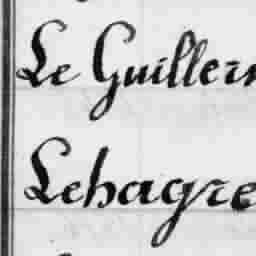 Le Guillerm
Lehagre